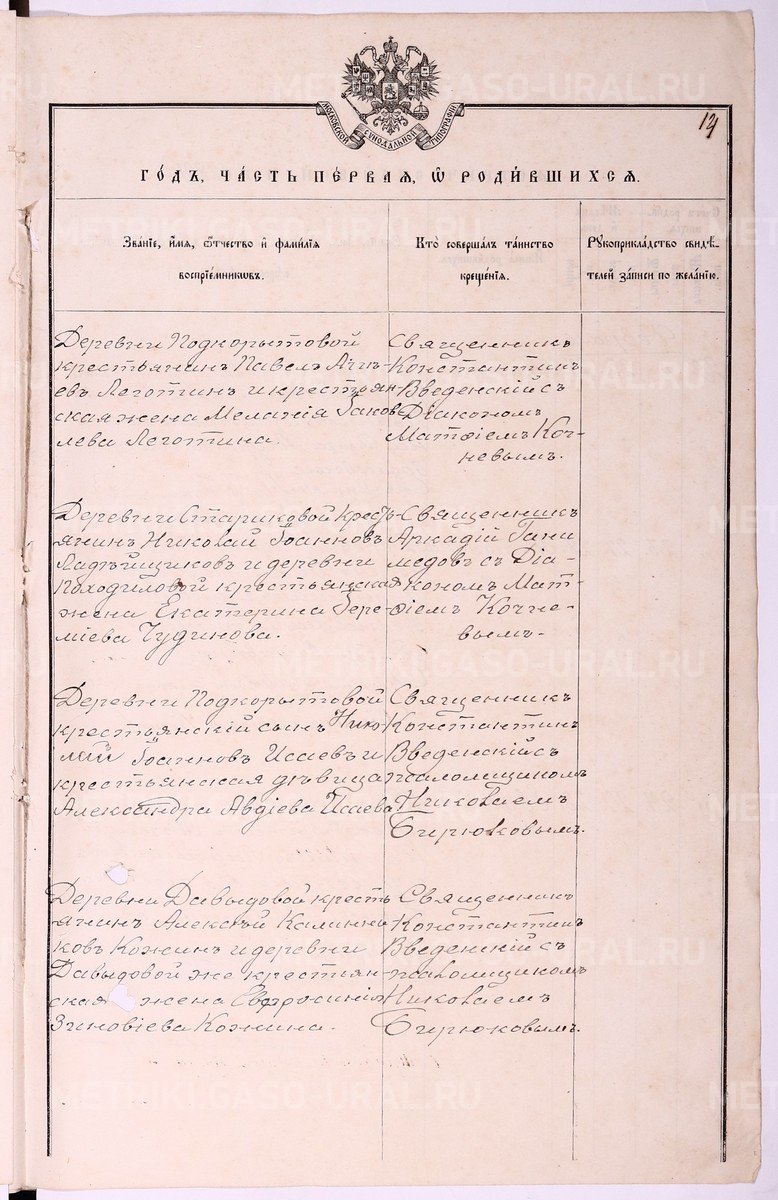 14
МОСКОВСКОЙ СѴНОДАЛЬНОЙ ТИПОГРАФІИ
ГОДЪ, ЧАСТЬ ПЕРВАЯ, Ѿ РОДИВШИХСЯ.
Званіе, имя, отчество и фамилія
воспріемниковъ.
Кто совершалъ таинство
крещенія.
Рукоприкладство свидѣ-
телей записи по желанію.
Деревни Подкорытовой
крестьянинъ Павелъ
евъ Леготинъ и крестьян-
ская жена Меланія Іаков-
лева Леготина.
Священникъ
Константинъ
Введенскій съ
Діакономъ
Матѳіемъ Коч-
невымъ.
Деревни Стариковой крестъ-
янинъ Николай Іоанновъ
Ладѣйщиковъ и деревни
Походиловой крестьянская
жена Екатерина Іере-
міева Чудинова.
Священникъ
Аркадій Гани
медовъ съ Діа-
кономъ Мат-
ѳіемъ Кочне-
вымъ.
Деревни Подкорытовой
крестьянскій сынъ Нико
лай Іоанновъ Исаевъ и
крестьянская дѣвица
Александра Авдіева Исаева
Священникъ
Константинъ
Введенскій съ
псаломщикомъ
Николаемъ
Бирюковымъ.
Деревни Давыдовой кресть
янинъ Алексѣй Калинни
ковъ Кожинъ и деревни
Давыдовой же крестиян-
ская жена Евфросинія
Зиновіева Кожина.
Священникъ
Константинъ
Введенскій съ
псаломщикомъ
Николаемъ
Бирюковымъ.
METRIKI.GASO-URAL.RU